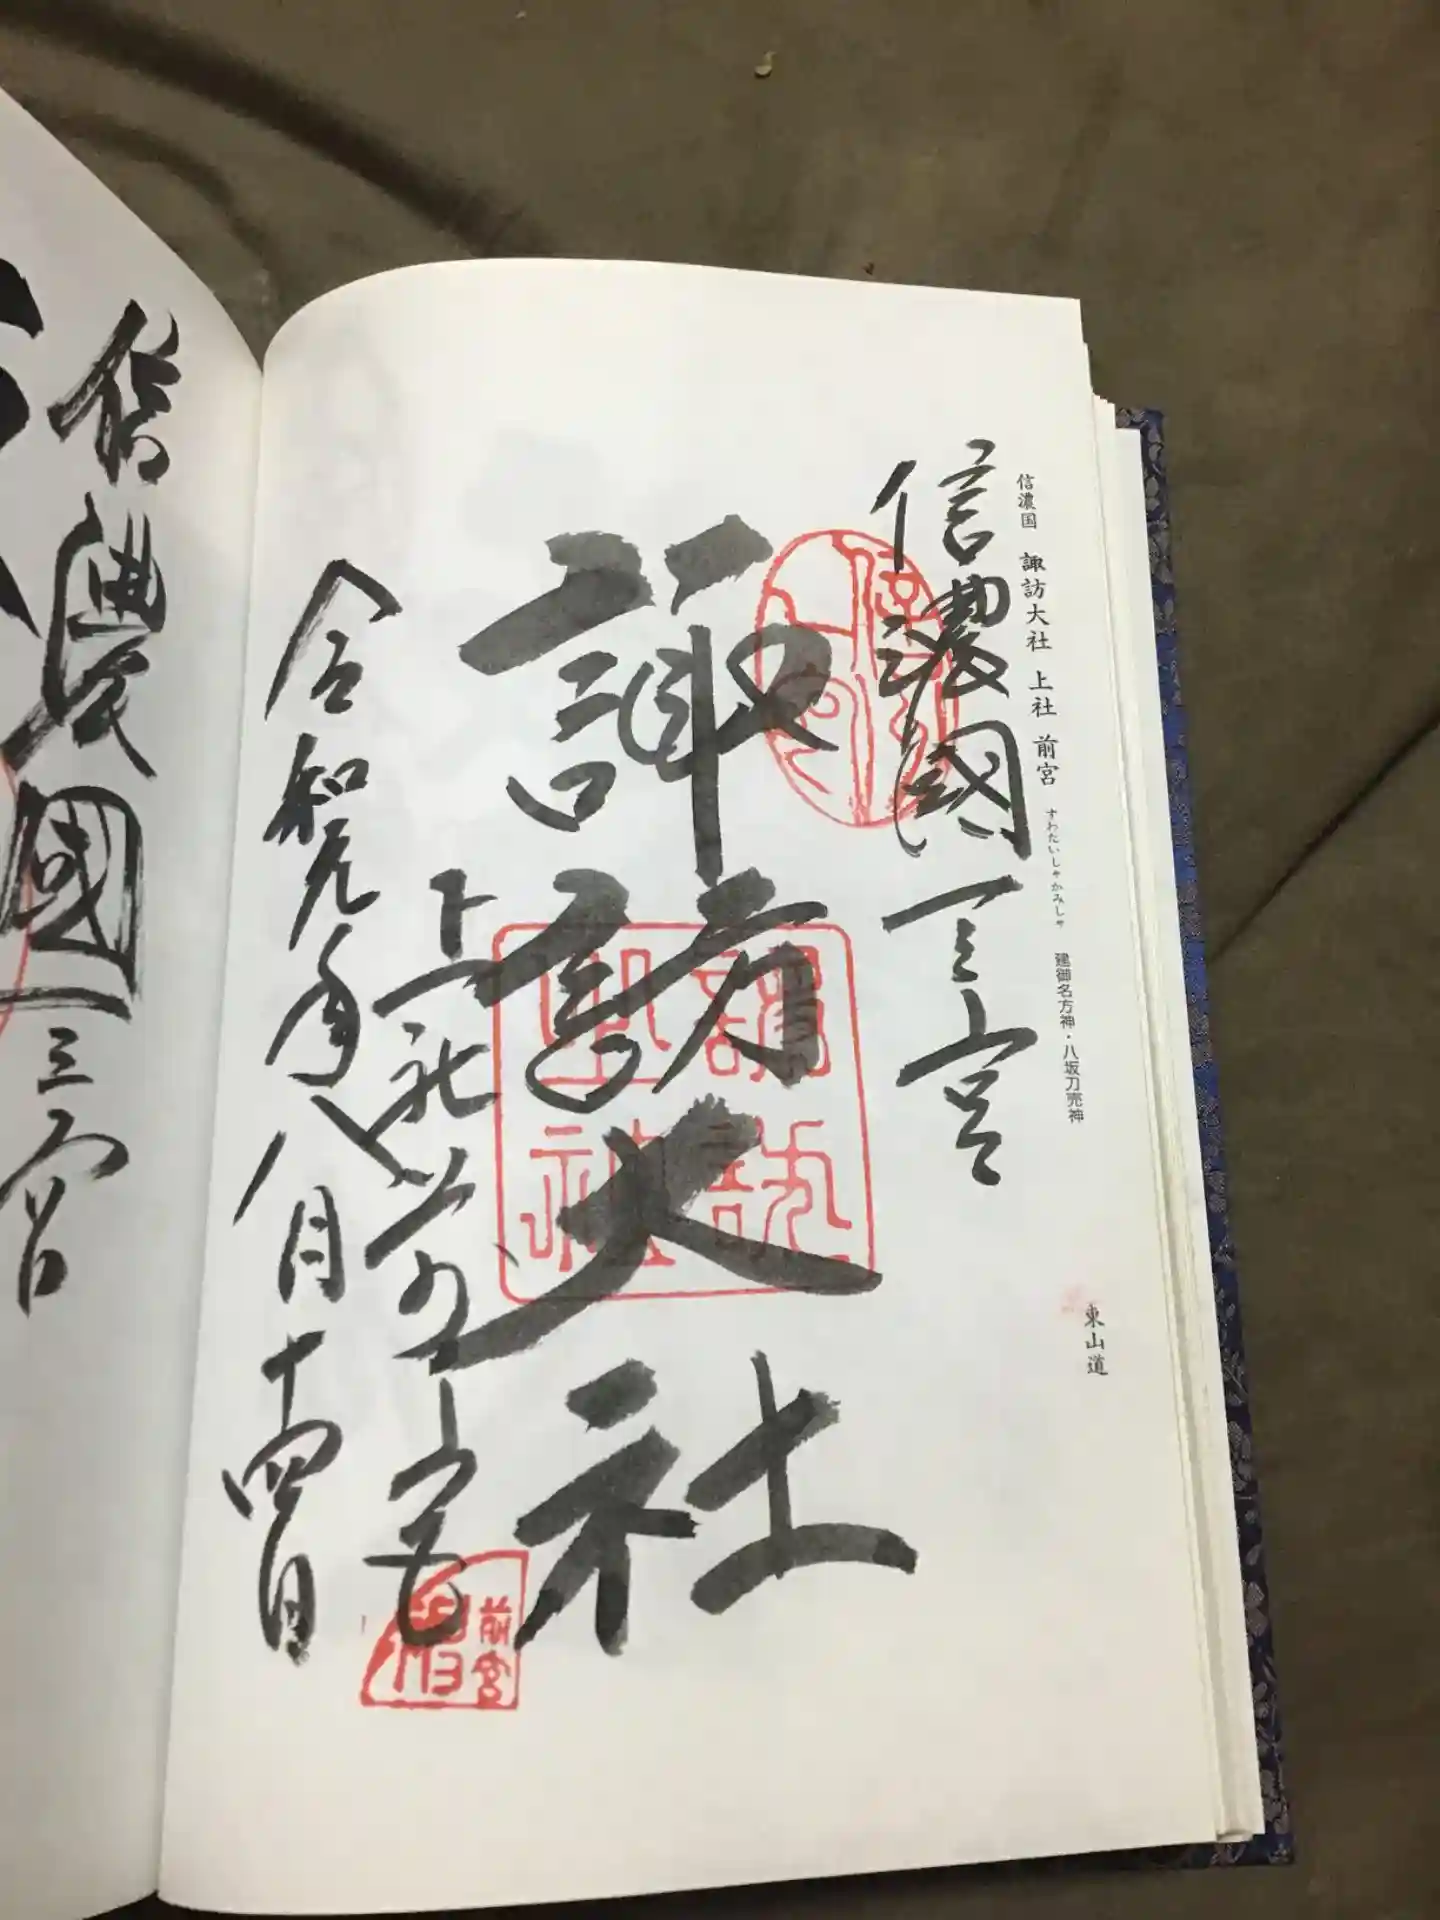 信濃国 諏訪大社 上社 前宮 すわたいしゃ かみしゃ 建御名方神・八坂刀売神
東山道
信濃國一之宮
諏訪大社
上社前宮
前宮
令和元年八月十四日
信濃國一之宮